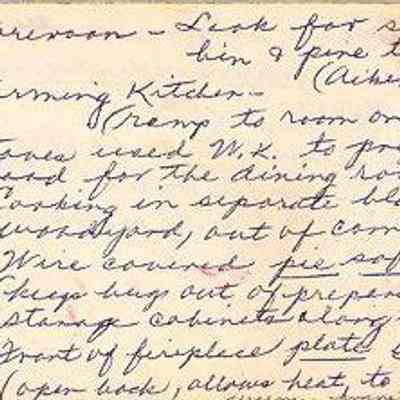 orenoon - Look for s
bin & pine t
(Aiken
arming Kitchen -
(ramp to room on
oves used W.K. to pre
ood for the dining roo
ooking in separate bl
woodyard, out of com
Wire covered pie saf
keeps bugs out of prepare
storage cabinets along
Front of fireplace plate
(open back, allows heat, to